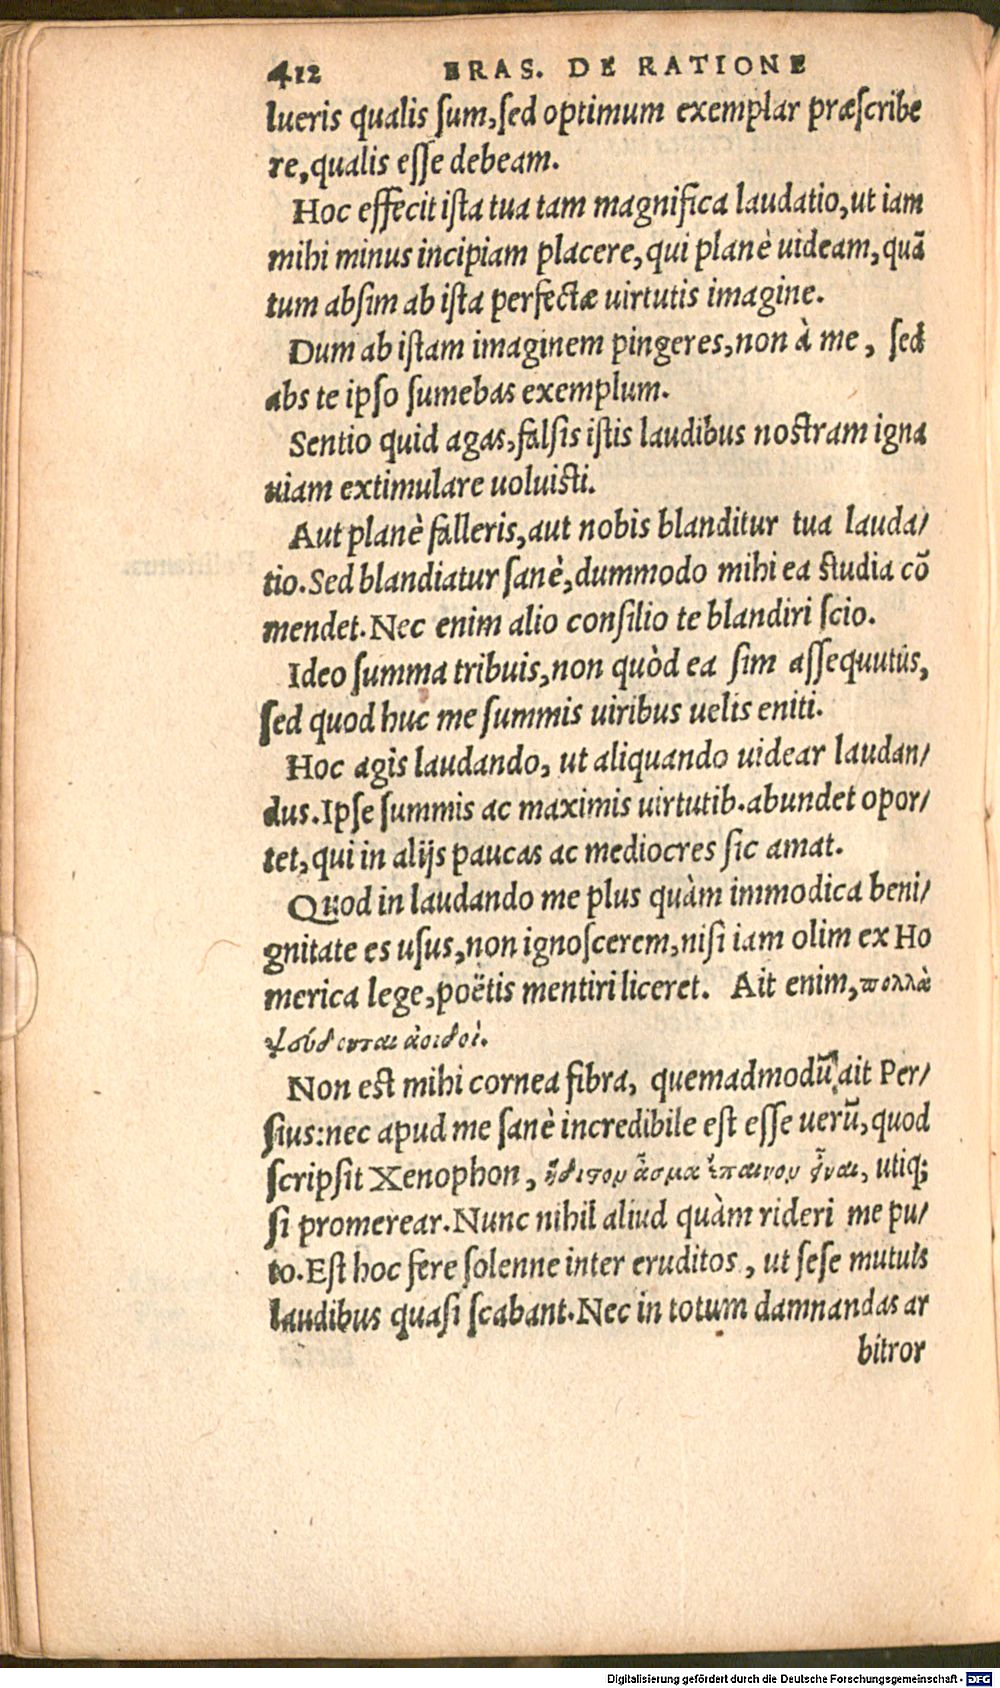 412 ERAS. DE RATIONE
lueris qualis ſum, ſed optimum exemplar præſcribe
re, qualis eſſe debeam.
Hoc effecit iſta tua tam magnifica laudatio, ut iam
mihi minus incipiam placere, qui planè uideam, quā
tum abſim ab iſta perfectæ uirtutis imagine.
Dum ab iſtam imaginem pingeres, non à me, ſed
abs te ipſo ſumebas exemplum.
Sentio quid agas, falſis iſtis laudibus noſtram igna
uiam extimulare uoluiſti.
Aut planè falleris, aut nobis blanditur tua lauda/
tio. Sed blandiatur ſanè, dummodo mihi ea ſtudia cō
mendet. Nec enim alio conſilio te blandiri ſcio.
Ideo ſumma tribuis, non quòd ea ſim aſſequutus,
ſed quod huc me ſummis uiribus uelis eniti.
Hoc agis laudando, ut aliquando uidear laudan/
dus. Ipſe ſummis ac maximis uirtutib. abundet opor/
tet, qui in alijs paucas ac mediocres ſic amat.
Quod in laudando me plus quàm immodica beni/
gnitate es uſus, non ignoſcerem, niſi iam olim ex Ho
merica lege, poëtis mentiri liceret. Ait enim, πολλὰ
ψεύδονται ἀοιδοὶ.
Non eſt mihi cornea fibra, quemadmodū ait Per/
ſius: nec apud me ſanè incredibile eſt eſſe uerū, quod
ſcripſit Xenophon, ἥδιστον ᾆσμα ἔπαινον εἶναι, utiq;
ſi promerear. Nunc nihil aliud quàm rideri me pu/
to. Eſt hoc fere ſolenne inter eruditos, ut ſeſe mutuis
laudibus quaſi ſcabant. Nec in totum damnandas ar
bitror
Digitalisierung gefördert durch die Deutsche Forschungsgemeinschaft - DFG